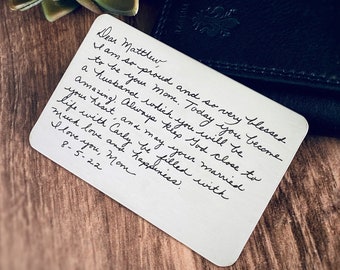 Dear Matthew
I am so proud and so very blessed
to be your Mom. Today you become
a husband which you will be
amazing! Always keep God close to
your heart an may your married
life with Carly be filled with
Much love and happiness
I love you Mom
8-5-22